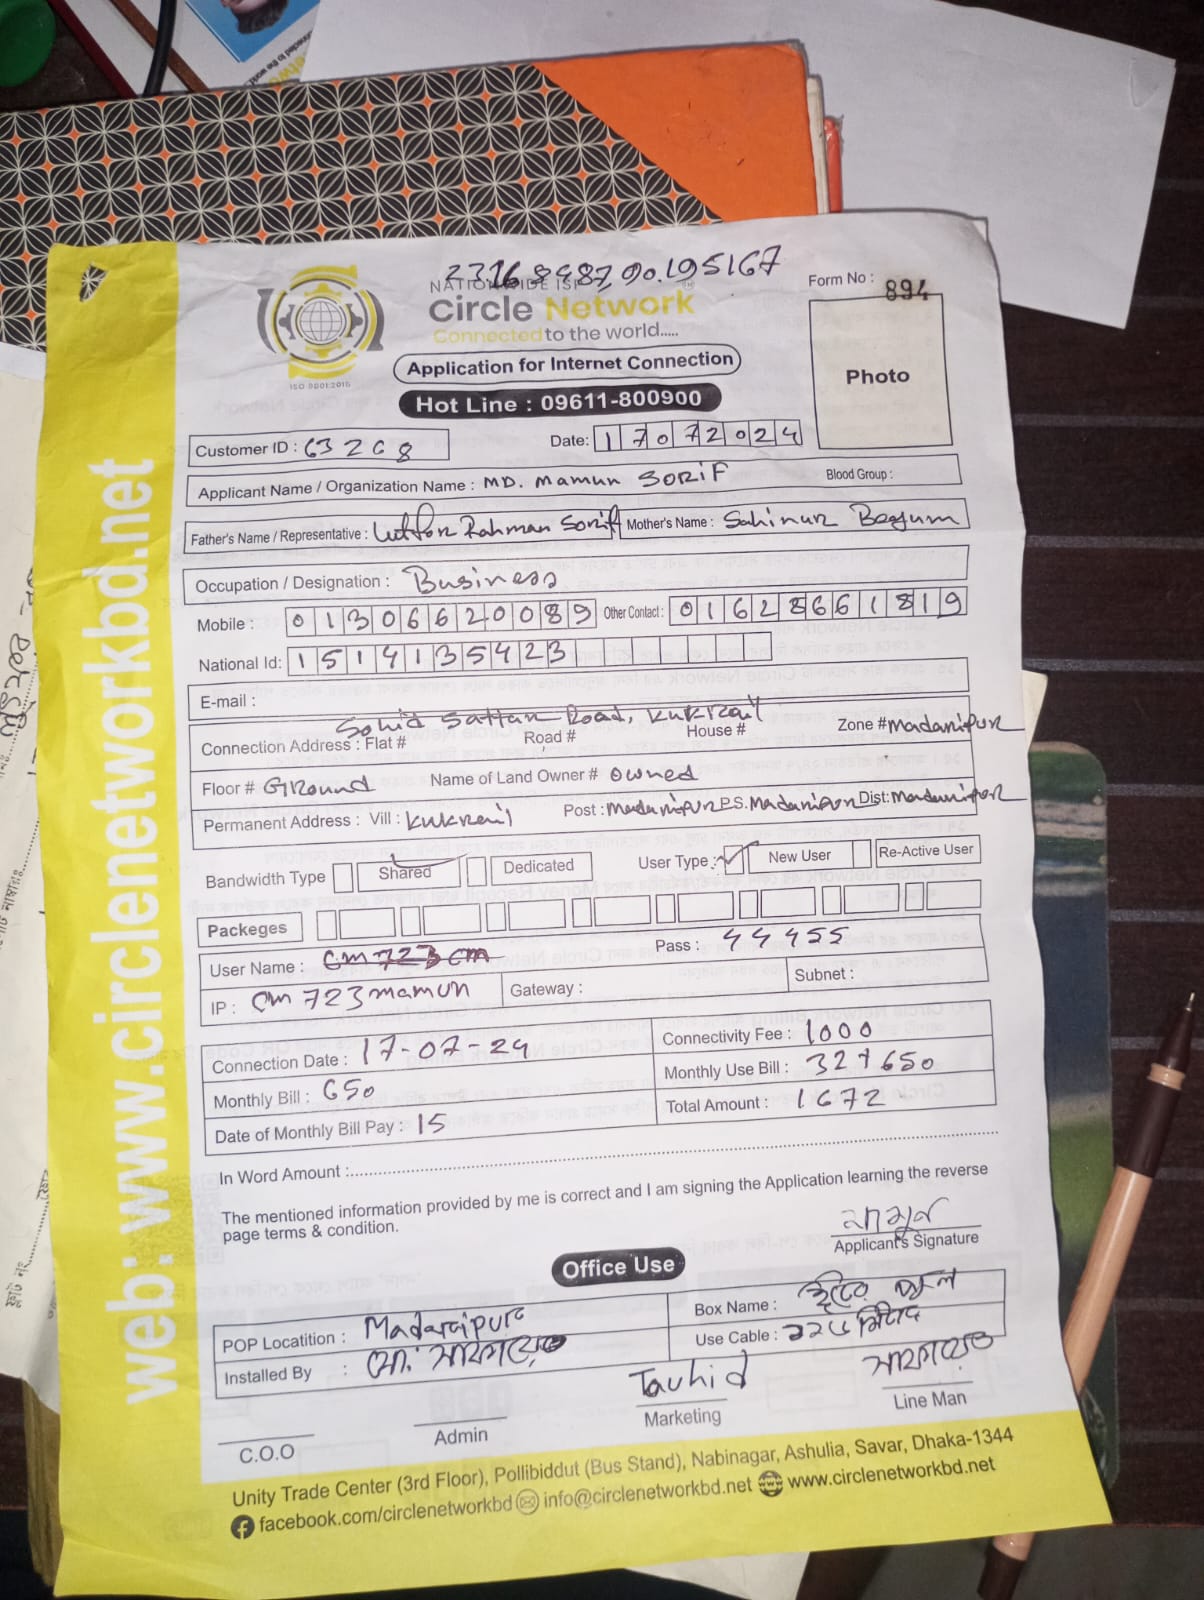 NATIONWIDE ISP
Circle Network
Connected to the world.....
ISO 9001:2015
Form No : 894
Photo
Application for Internet Connection
Hot Line : 09611-800900
Customer ID : 63268
Date: 17072024
Applicant Name / Organization Name : MD. Mamun SORIF
Blood Group :
Father's Name / Representative : Lutfor Rahman Sorif Mother's Name : Sahinur Begum
Occupation / Designation : Business
Mobile : 01306620089 Other Contact : 01628661819
National Id: 1514135423
E-mail :
Sohid Sattar Road, Kukrail
Connection Address : Flat # Road # House # Zone # Madaripur
Floor # Ground Name of Land Owner # owned
Permanent Address : Vill : Kukrail Post : Madaripur P.S. Madaripur Dist: Madaripur
Bandwidth Type Shared Dedicated User Type : New User Re-Active User
Packeges
User Name : cm723cm Pass : 44455
IP : cm723mamun Gateway : Subnet :
Connection Date : 17-07-24 Connectivity Fee : 1000
Monthly Bill : 650 Monthly Use Bill : 32+650
Date of Monthly Bill Pay : 15 Total Amount : 1672
In Word Amount :
The mentioned information provided by me is correct and I am signing the Application learning the reverse
page terms & condition.
মামুন
Applicant's Signature
Office Use
POP Locatition : Madaripur Box Name :
Installed By : Use Cable :
Tauhid
C.O.O Admin Marketing Line Man
Unity Trade Center (3rd Floor), Pollibiddut (Bus Stand), Nabinagar, Ashulia, Savar, Dhaka-1344
facebook.com/circlenetworkbd info@circlenetworkbd.net www.circlenetworkbd.net
web: www.circlenetworkbd.net